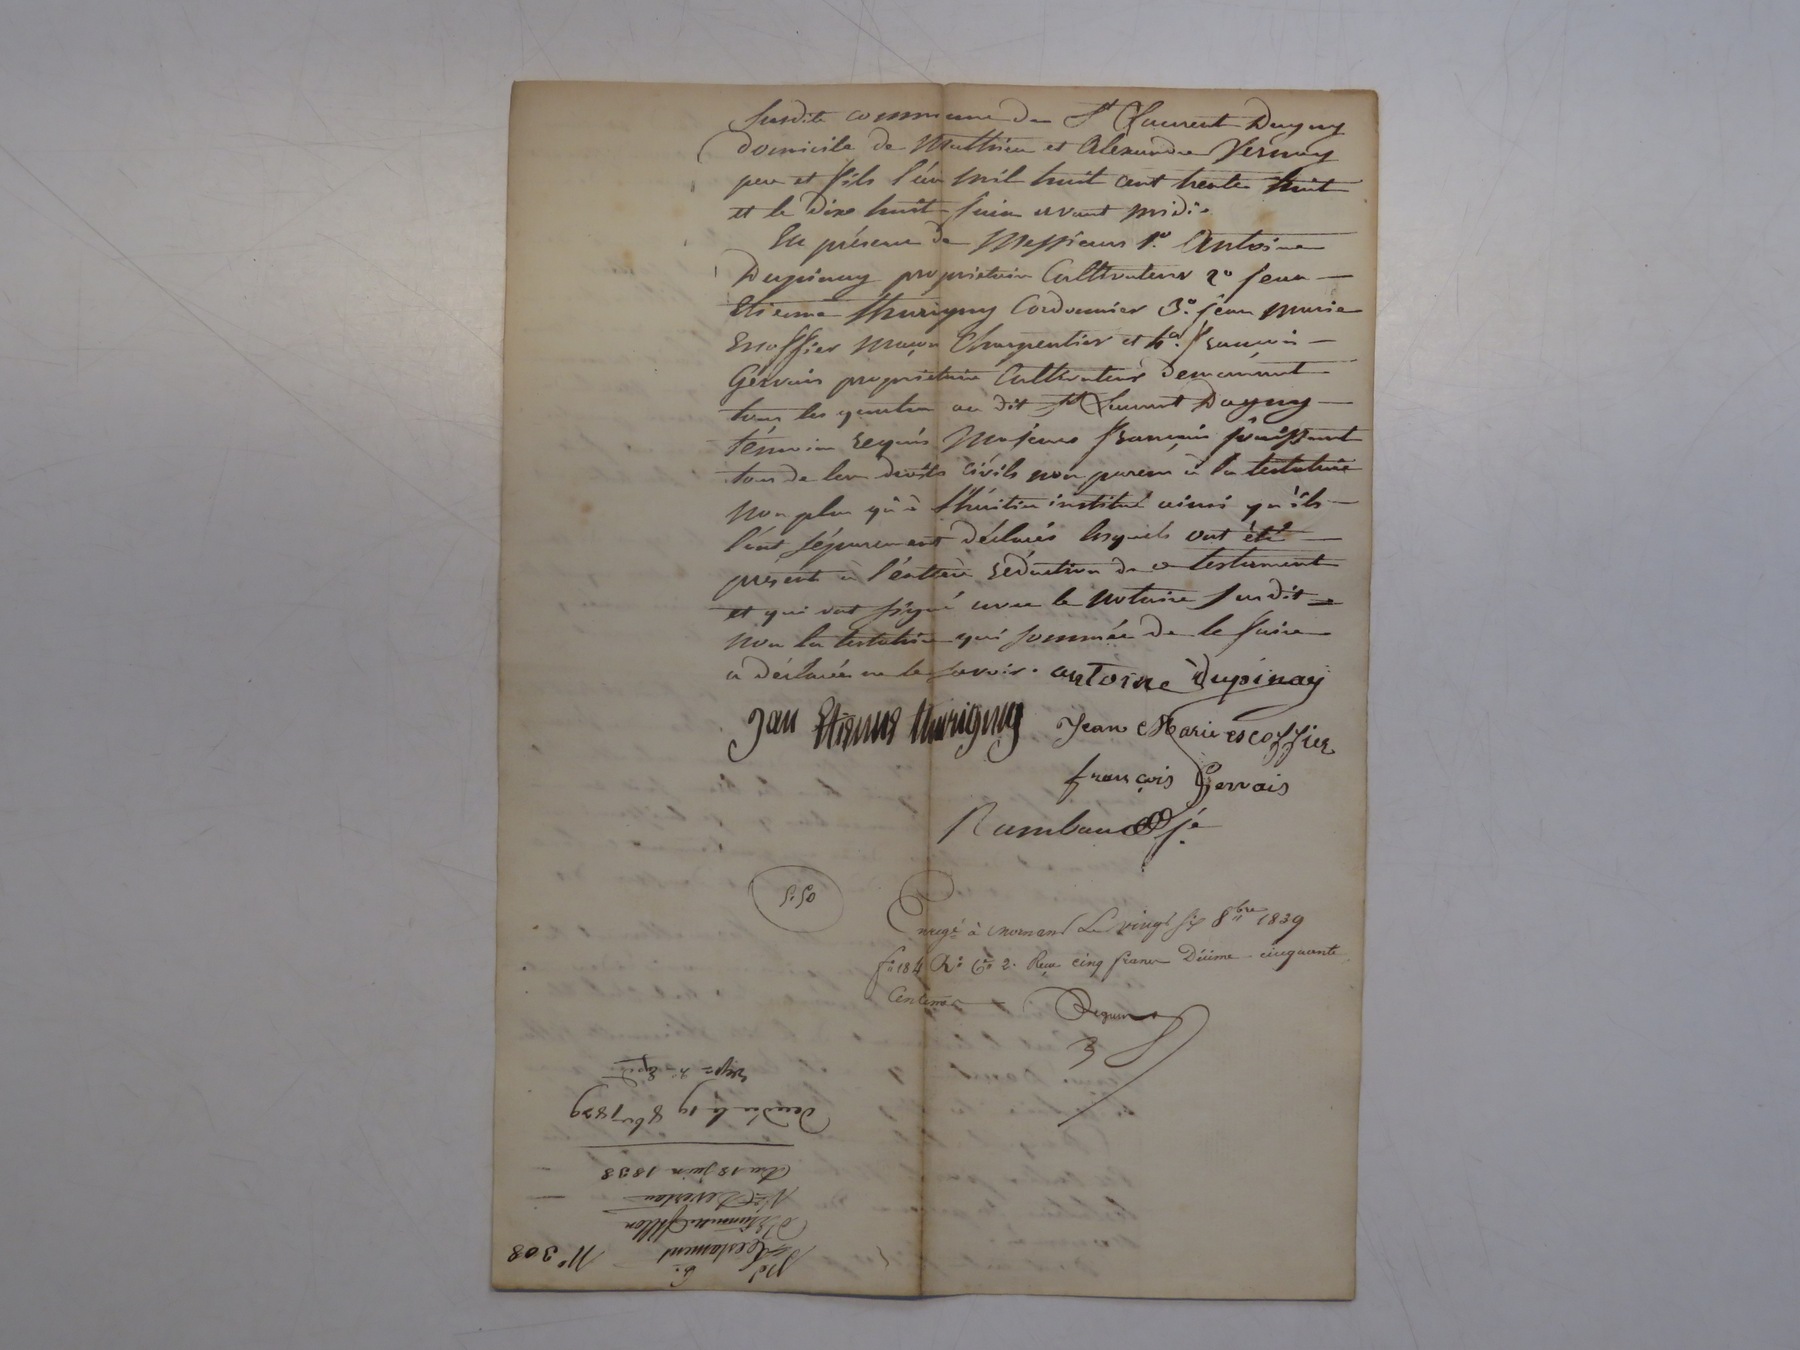 susdite commune de St Laurent Dagny
domicile de Mathieu et Alexandre Vernay
pere et fils l'an mil huit cent trente huit
et le dixe huit juin avant midi.
En présence de Messieurs 1º Antoine
Dupinay propriétaire Cultivateur 2º Jean
Etienne thurigny Cordonnier 3º Jean Marie
Escoffier maçon Charpentier et 4º François
Gervais propriétaire Cultivateur demeurant
tous les quatre au dit St Laurent Dagny
témoins requis Majeurs français jouissant
tous de leur droits civils non parens à la testatrice
non plus qu'à l'héritier institué ainsi qu'ils
l'ont séparement déclarés lesquels ont été
présent à l'entière rédaction de ce testament
et qui ont signé avec le notaire susdit
non la testatrice qui sommée de le faire
a déclarée ne le savoir. antoine Dupinay
Jean Etienne thurigny Jean Marie escoffier
françois Gervais
Rambaud
5.50
Enregé à Mornant Le vingt six 8bre 1839
fº 184 Rº Cse 2. Reçu cinq francs Décime cinquante
Centimes
Nº 308
Testament
d'Etiennette
Du 18 juin 1838
Décédée le 19 8bre 1839